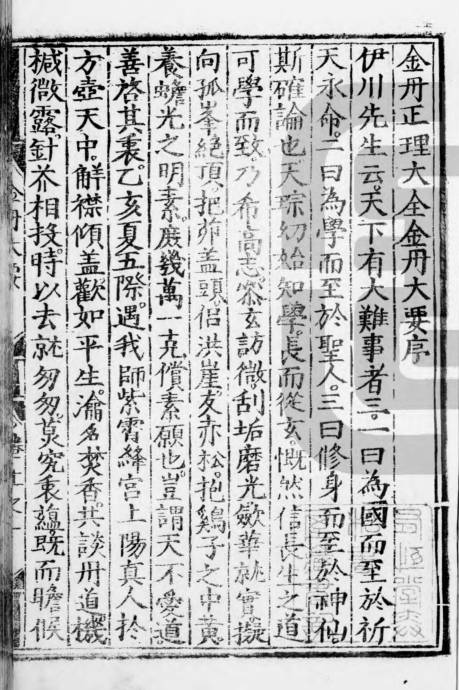 金丹正理大全金丹大要序
伊川先生云。天下有大難事者三。一曰為國而至於祈
天永命。二曰為學而至於聖人。三曰修身而至於神仙
斯確論也。天琮幼始知學。長而從玄。慨然信長生之道
可學而致。乃希高志。叅玄訪微。刮垢磨光。斂華就實。擬
向孤峯絕頂。把茆盖頭。侣洪崖。友赤松。抱鷄子之中黃
養蟾光之明素。庶幾萬一克償素願也。豈謂天不愛道
善啓其衷。乙亥夏五際。遇我師紫霄絳宮上陽真人於
方壺天中。觧襟傾盖。歡如平生。瀹茗焚香。共談丹道。機
椷微露。針芥相投。時以去就匆匆。莫究衷藴。既而瞻候